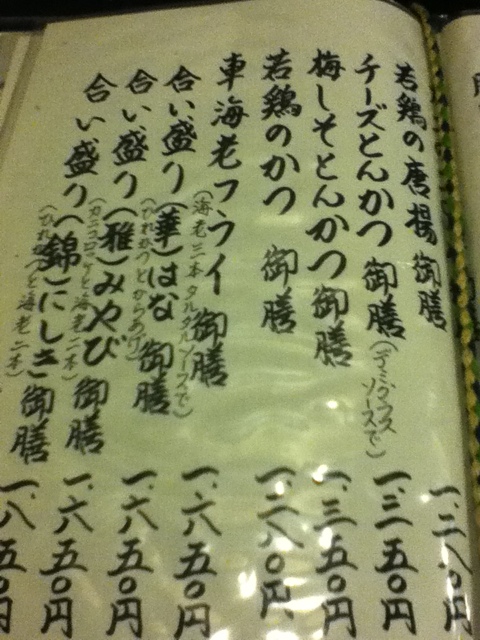 若鶏の唐揚 御膳 一、二八〇円
チーズとんかつ 御膳 (デミグラスソースで) 一、三五〇円
梅しそとんかつ御膳 一、三五〇円
若鶏のかつ 御膳 一、二八〇円
車海老フライ御膳 (海老三本タルタルソースで) 一、六五〇円
合い盛り(華)はな 御膳 (ひれかつとからあげ) 一、六五〇円
合い盛り(雅)みやび 御膳 (カニコロッケと海老二本) 一、六五〇円
合い盛り(錦)にしき御膳 (ひれかつと海老二本) 一、八五〇円